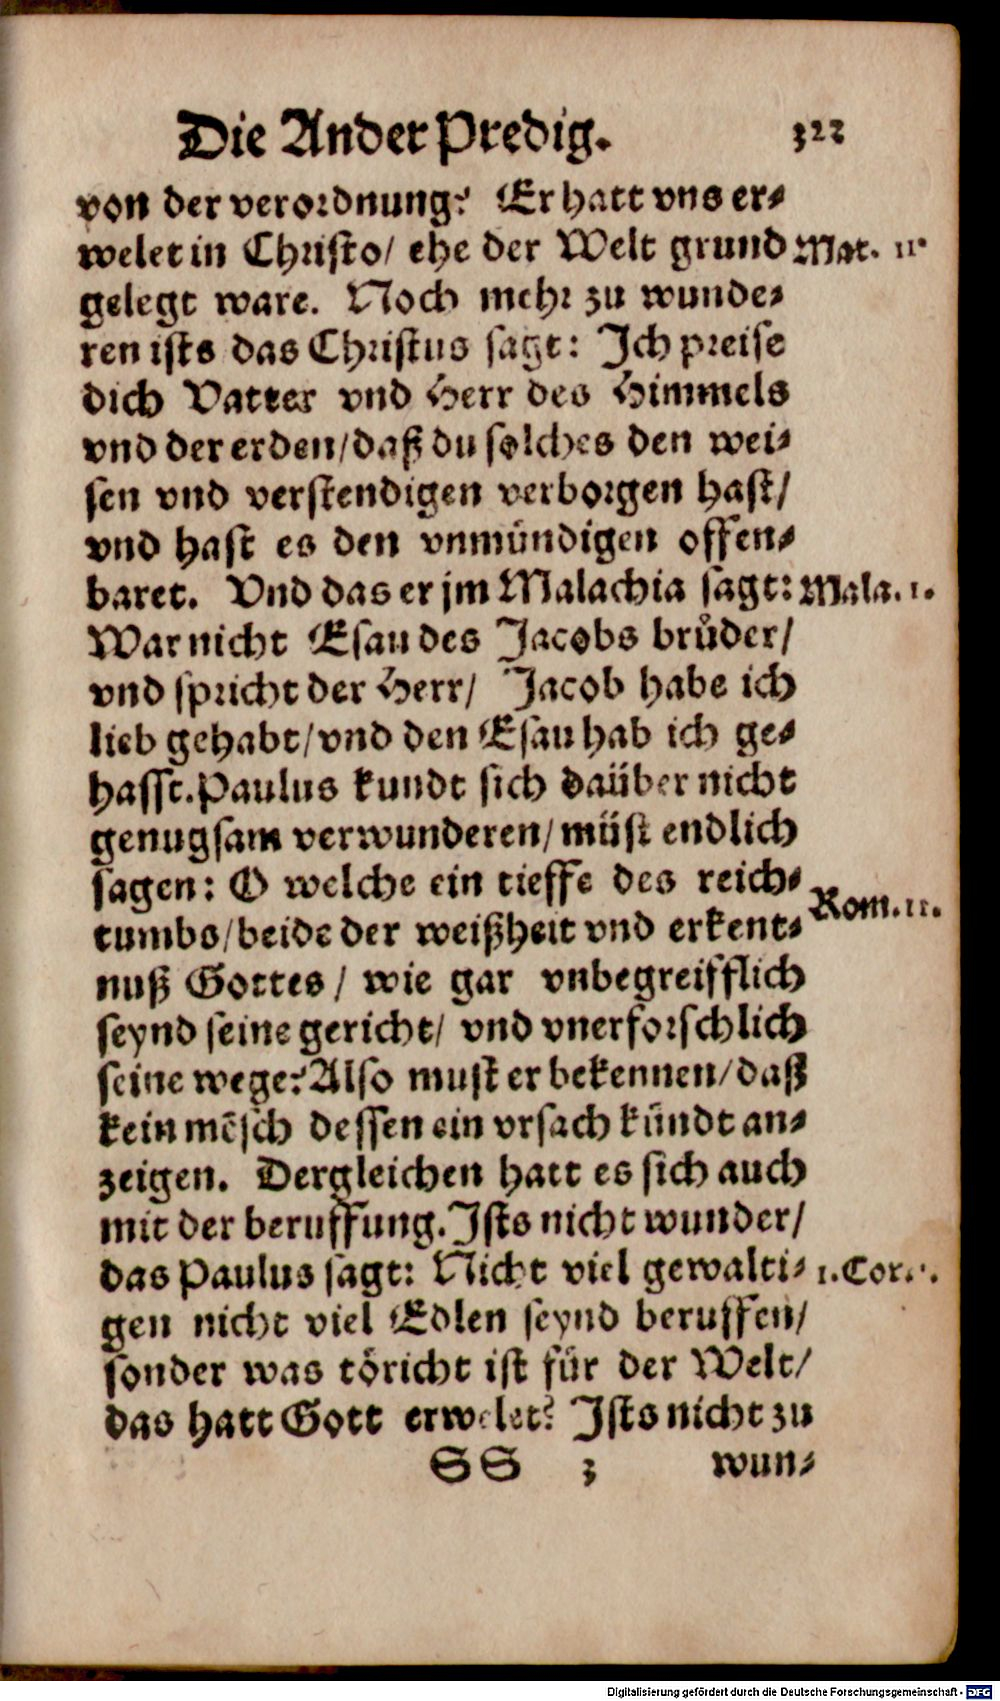 Die Ander Predig. 322
von der verordnung? Er hatt vns er-
welet in Christo/ ehe der Welt grund Mat. 11.
gelegt ware. Noch mehr zu wunde-
ren ists das Christus sagt: Ich preise
dich Vatter vnd Herr des Himmels
vnd der erden/daß du solches den wei-
sen vnd verstendigen verborgen hast/
vnd hast es den vnmündigen offen-
baret. Vnd das er jm Malachia sagt: Mala. 1.
War nicht Esau des Jacobs brůder/
vnd spricht der Herr/ Jacob habe ich
lieb gehabt/vnd den Esau hab ich ge-
hasst. Paulus kundt sich daüber nicht
genugsam verwunderen/müst endlich
sagen: O welche ein tieffe des reich-
tumbs/beide der weißheit vnd erkent- Rom. 11.
nuß Gottes/ wie gar vnbegreifflich
seynd seine gericht/ vnd vnerforschlich
seine wege? Also must er bekennen/daß
kein mẽsch dessen ein vrsach kündt an-
zeigen. Dergleichen hatt es sich auch
mit der beruffung. Ists nicht wunder/
das Paulus sagt: Nicht viel gewalti- 1. Cor.
gen nicht viel Edlen seynd beruffen/
sonder was töricht ist für der Welt/
das hatt Gott erwelet? Ists nicht zu
SS 3 wun-
Digitalisierung gefördert durch die Deutsche Forschungsgemeinschaft - DFG